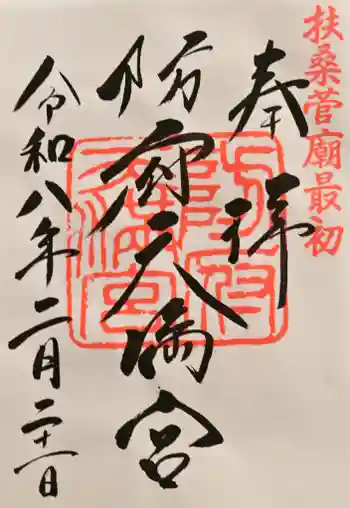 扶桑菅廟最初
奉拝
防府天満宮
令和八年二月二十一日
防府天満宮